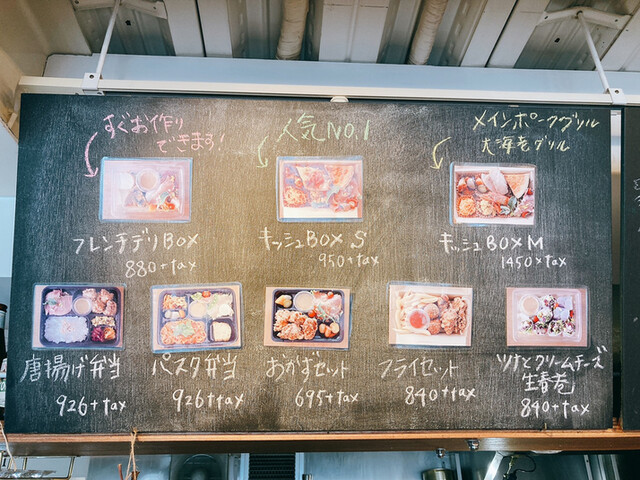 すぐお作り
できます!
人気NO.1
メインポークグリル
大海老グリル
フレンチデリBOX
880+tax
キッシュBOX S
950+tax
キッシュBOX M
1450+tax
唐揚げ弁当
926+tax
パスタ弁当
926+tax
おかずセット
695+tax
フライセット
840+tax
ツナとクリームチーズ
生春巻
840+tax